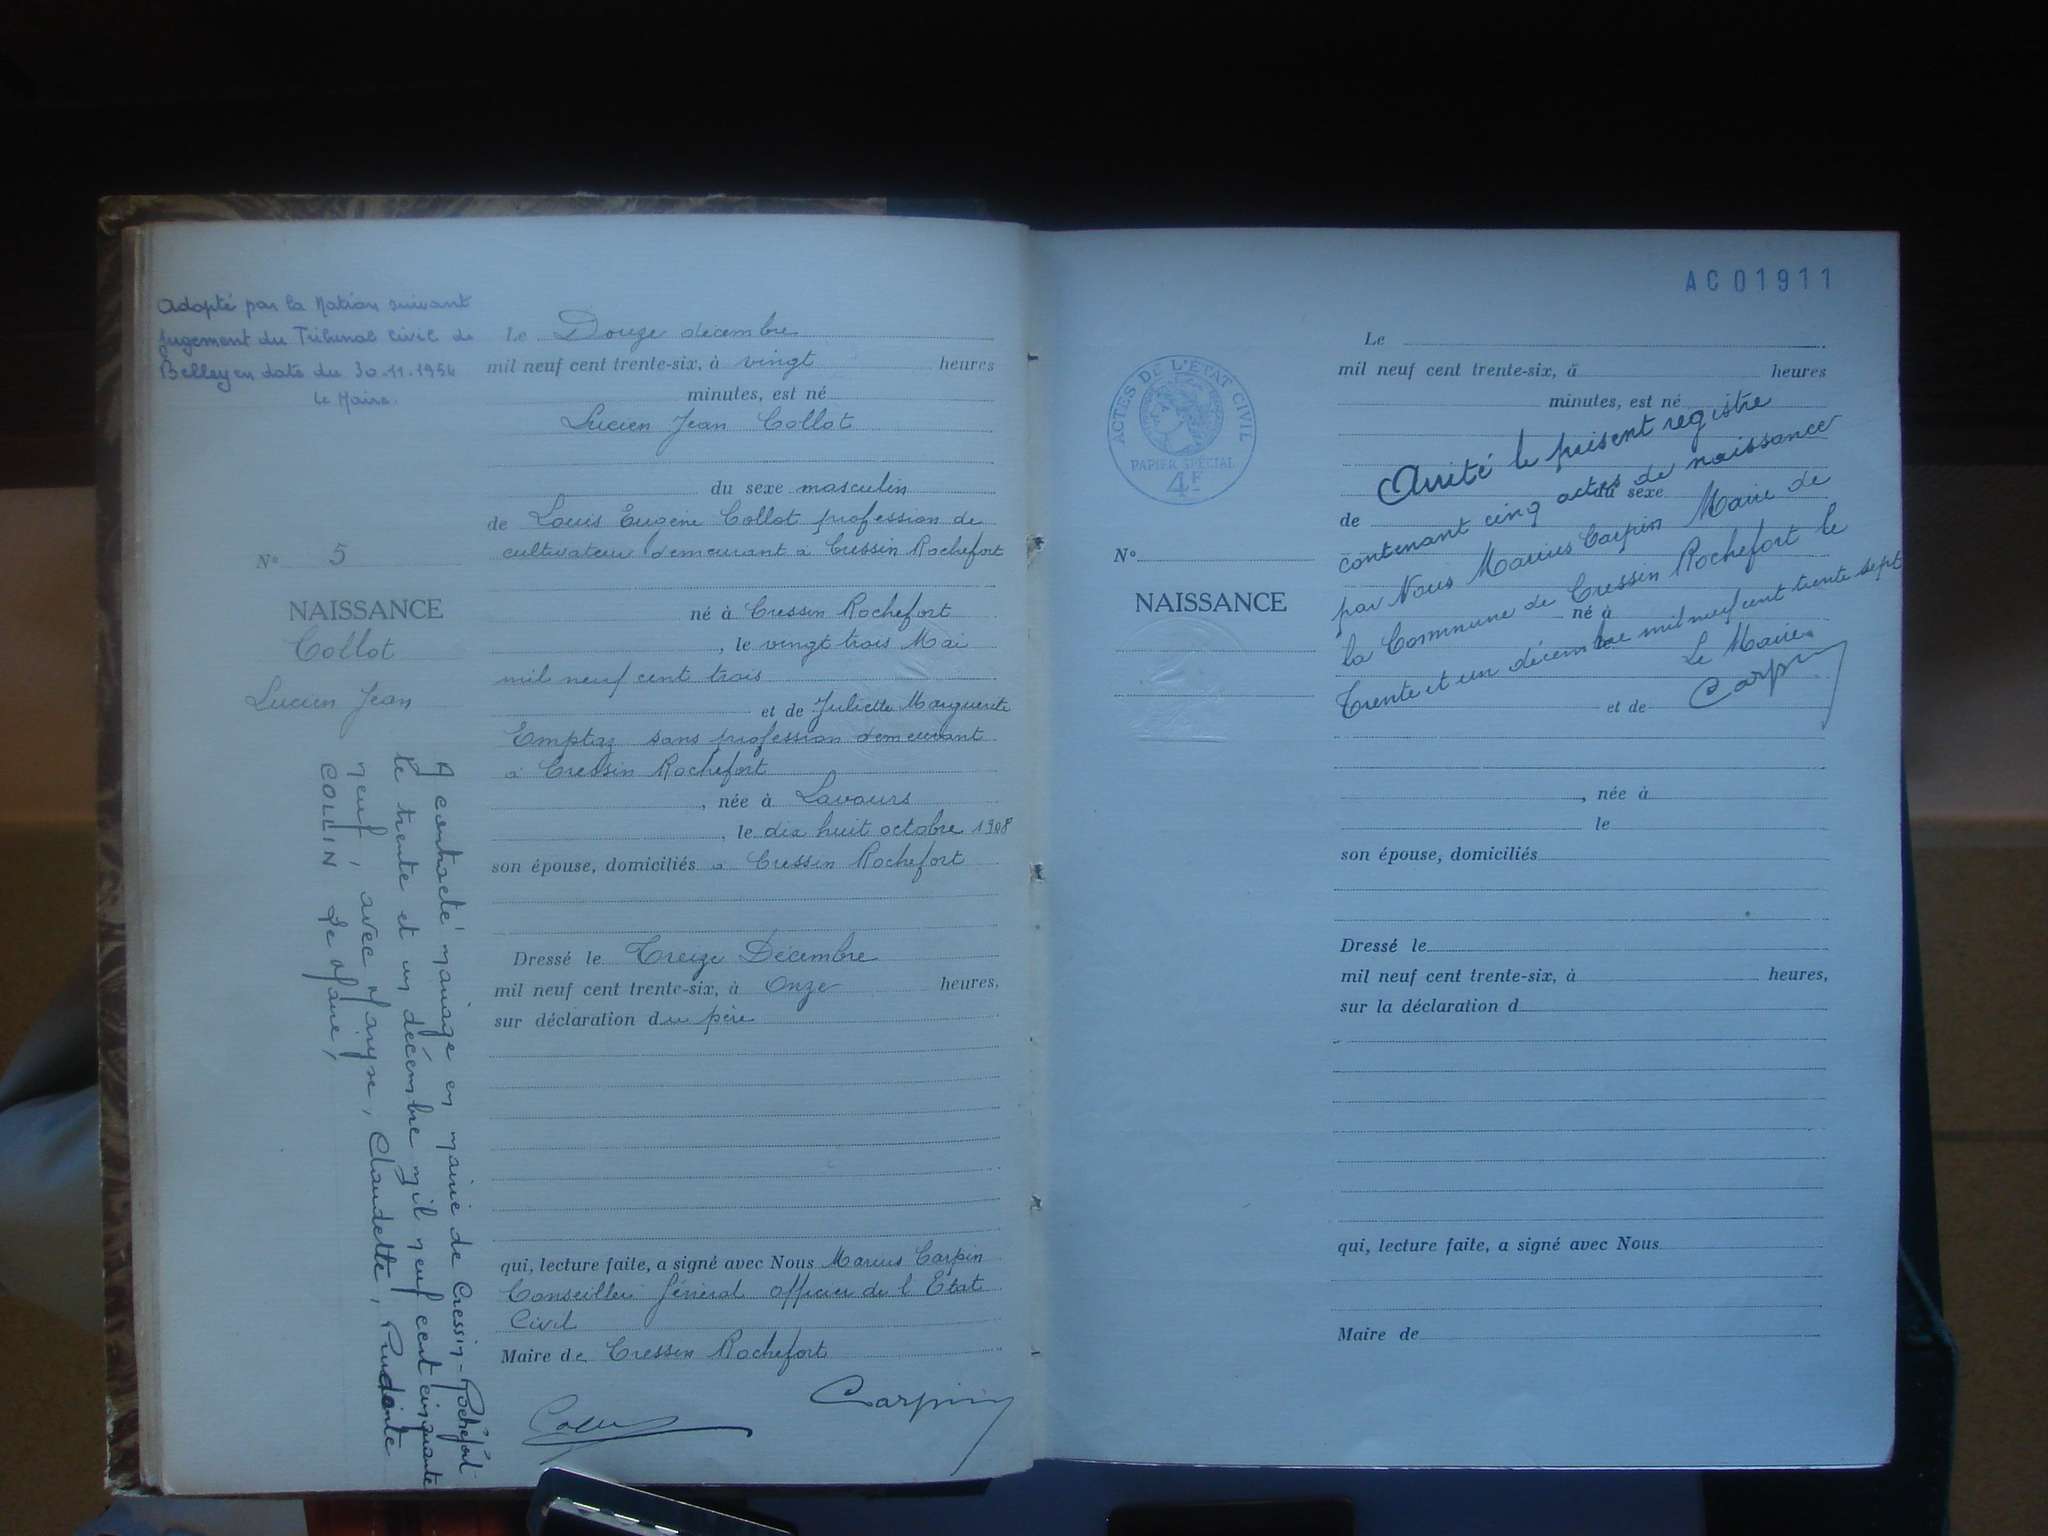 Adopté par la Nation suivant
jugement du Tribunal Civil de
Belley en date du 30.11.1954
Le Maire.
Le Douze décembre
mil neuf cent trente-six, à vingt heures
minutes, est né
Lucien Jean Collot
du sexe masculin
de Louis Eugène Collot profession de
cultivateur demeurant à Cressin Rochefort
né à Cressin Rochefort
, le vingt trois Mai
mil neuf cent trois
et de Juliette Marguerite
Emptoz sans profession demeurant
à Cressin Rochefort
, née à Lavours
, le dix huit octobre 1908
son épouse, domiciliés à Cressin Rochefort
Dressé le Treize Décembre
mil neuf cent trente-six, à Onze heures,
sur déclaration du père
qui, lecture faite, a signé avec Nous Marius Carpin
Conseiller Général officier de l Etat
Civil
Maire de Cressin Rochefort
Carpin
N° 5
NAISSANCE
Collot
Lucien Jean
A contracté mariage en mairie de Cressin-Rochefort
le trente et un décembre mil neuf cent cinquante
neuf, avec Maryse, Claudette,
COLLIN Le Maire,
AC 01911
ACTES DE L'ÉTAT CIVIL
PAPIER SPÉCIAL
4F
N°
NAISSANCE
Le
mil neuf cent trente-six, à heures
minutes, est né
du sexe
de
né à
et de
, née à
le
son épouse, domiciliés
Dressé le
mil neuf cent trente-six, à heures,
sur la déclaration d
qui, lecture faite, a signé avec Nous
Maire de
Arrêté le présent registre
contenant cinq actes de naissance
par Nous Marius Carpin Maire de
la Commune de Cressin Rochefort le
Trente et un décembre mil neuf cent trente sept
Le Maire
Carpin